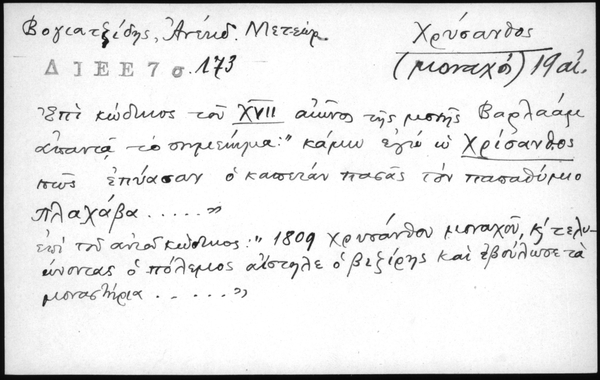 Βογιατζίδης, Ἀνέκδ. Μετεώρ.
Χρύσανθος
ΔΙΕΕ 7 σ. 173
(μοναχός) 19 αἰ.
Ἐπὶ κώδικος τοῦ XVII αἰῶνος τῆς μονῆς Βαρλαάμ
ἀπαντᾷ τὸ σημείωμα: " κάμω ἐγώ ὁ Χρίσανθος
πῶς ἐπύασαν ὁ καπετάν πασᾶς τὸν παπαθύμιο
πλαχάβα ..... "
ἐπὶ τοῦ αὐτοῦ κώδικος: " 1809 χρυσάνθου μοναχοῦ, κ' τελυ-
ώνοντας ὁ πόλεμος αἴστηλε ὁ βεζίρης καὶ ἐβούλωσε τὰ
μοναστήρια ..... "